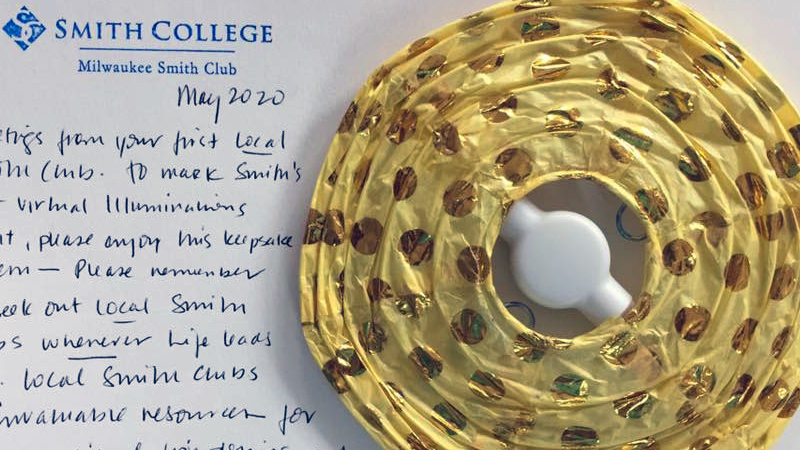 SMITH COLLEGE
Milwaukee Smith Club
May 2020
etings from your first local
ith Club. To mark Smith's
t virtual Illuminations
ht, please enjoy this keepsake
em — Please remember
eek out local Smith
bs whenever life leads
. Local Smith Clubs
invaluable resources for